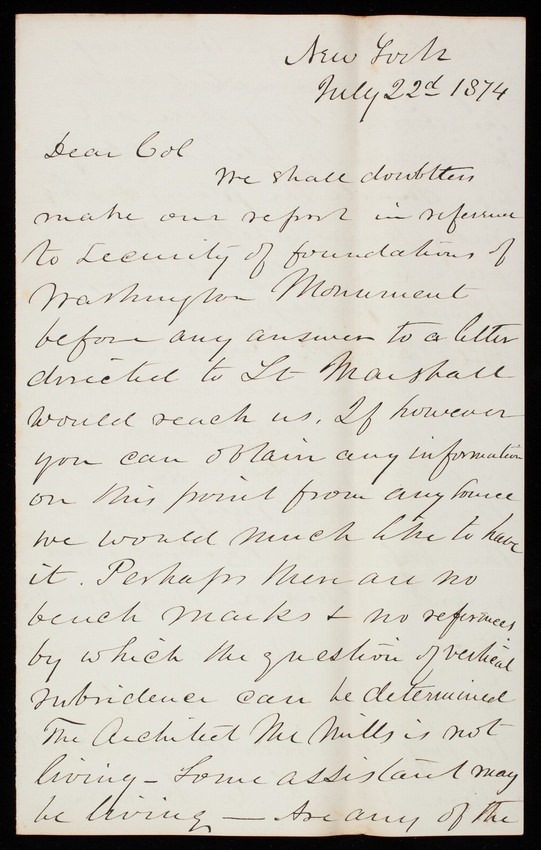 New York
July 22d 1874
Dear Col
We shall doubtless
make our report in reference
to Security of foundations of
Washington Monument
before any answer to a letter
directed to Lt Marshall
would reach us. If however
you can obtain any information
on this point from any source
we would much like to have
it. Perhaps there are no
bench marks & no references
by which the question of vertical
subsidence can be determined
The Architect Mr Mills is not
living - Some assistant may
be living - Are any of the